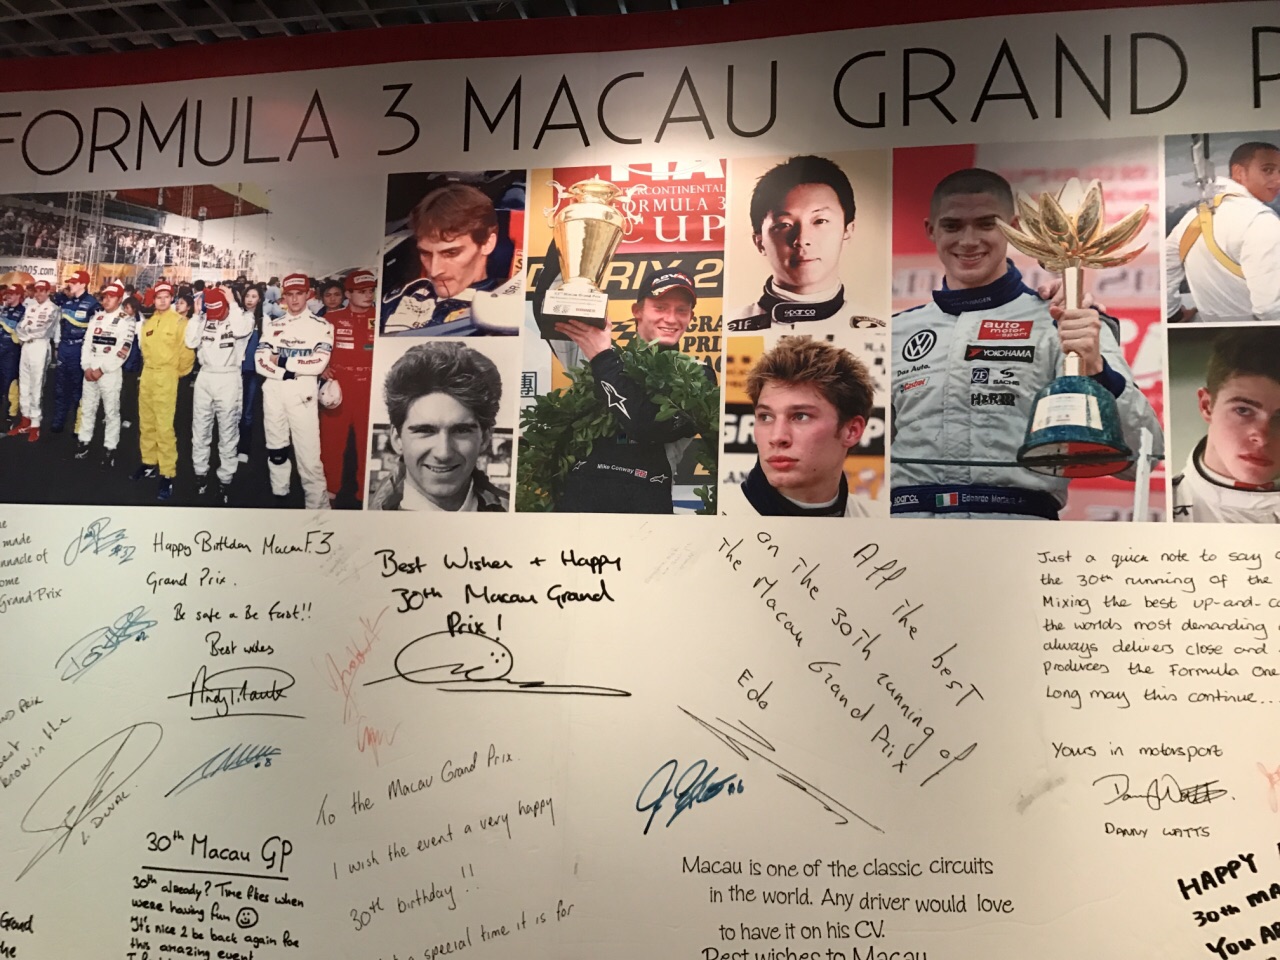 FORMULA 3 MACAU GRAND P
INTERCONTINENTAL
FORMULA 3
CUP
PRIX 2
GRA
PRI
Mike Conway
sparco
auto
motor
sport
YOKOHAMA
Das Auto.
Castrol
ZF
SACHS
HERTZ
sparco
Edoardo Mortara
made
nnacle of
ome
Grand Prix
Happy Birthday Macau F.3
Grand Prix.
Be safe & Be Fast!!
Best wishes
Best Wishes + Happy
30th Macau Grand
Prix!
All the best
on the 30th running of
the Macau Grand Prix
Edo
Just a quick note to say
the 30th running of the
Mixing the best up-and-co
the worlds most demanding
always delivers close and
produces the Formula One
Long may this continue...
Yours in motorsport
DANNY WATTS
know in the
L. DUVAL
To the Macau Grand Prix.
I wish the event a very happy
30th birthday!!
special time it is for
30th Macau GP
30th already? Time flies when
were having fun
it's nice 2 be back again for
this amazing event
Macau is one of the classic circuits
in the world. Any driver would love
to have it on his CV.
Best wishes to Macau
HAPPY
30th MA
YOU AR
Grand
he